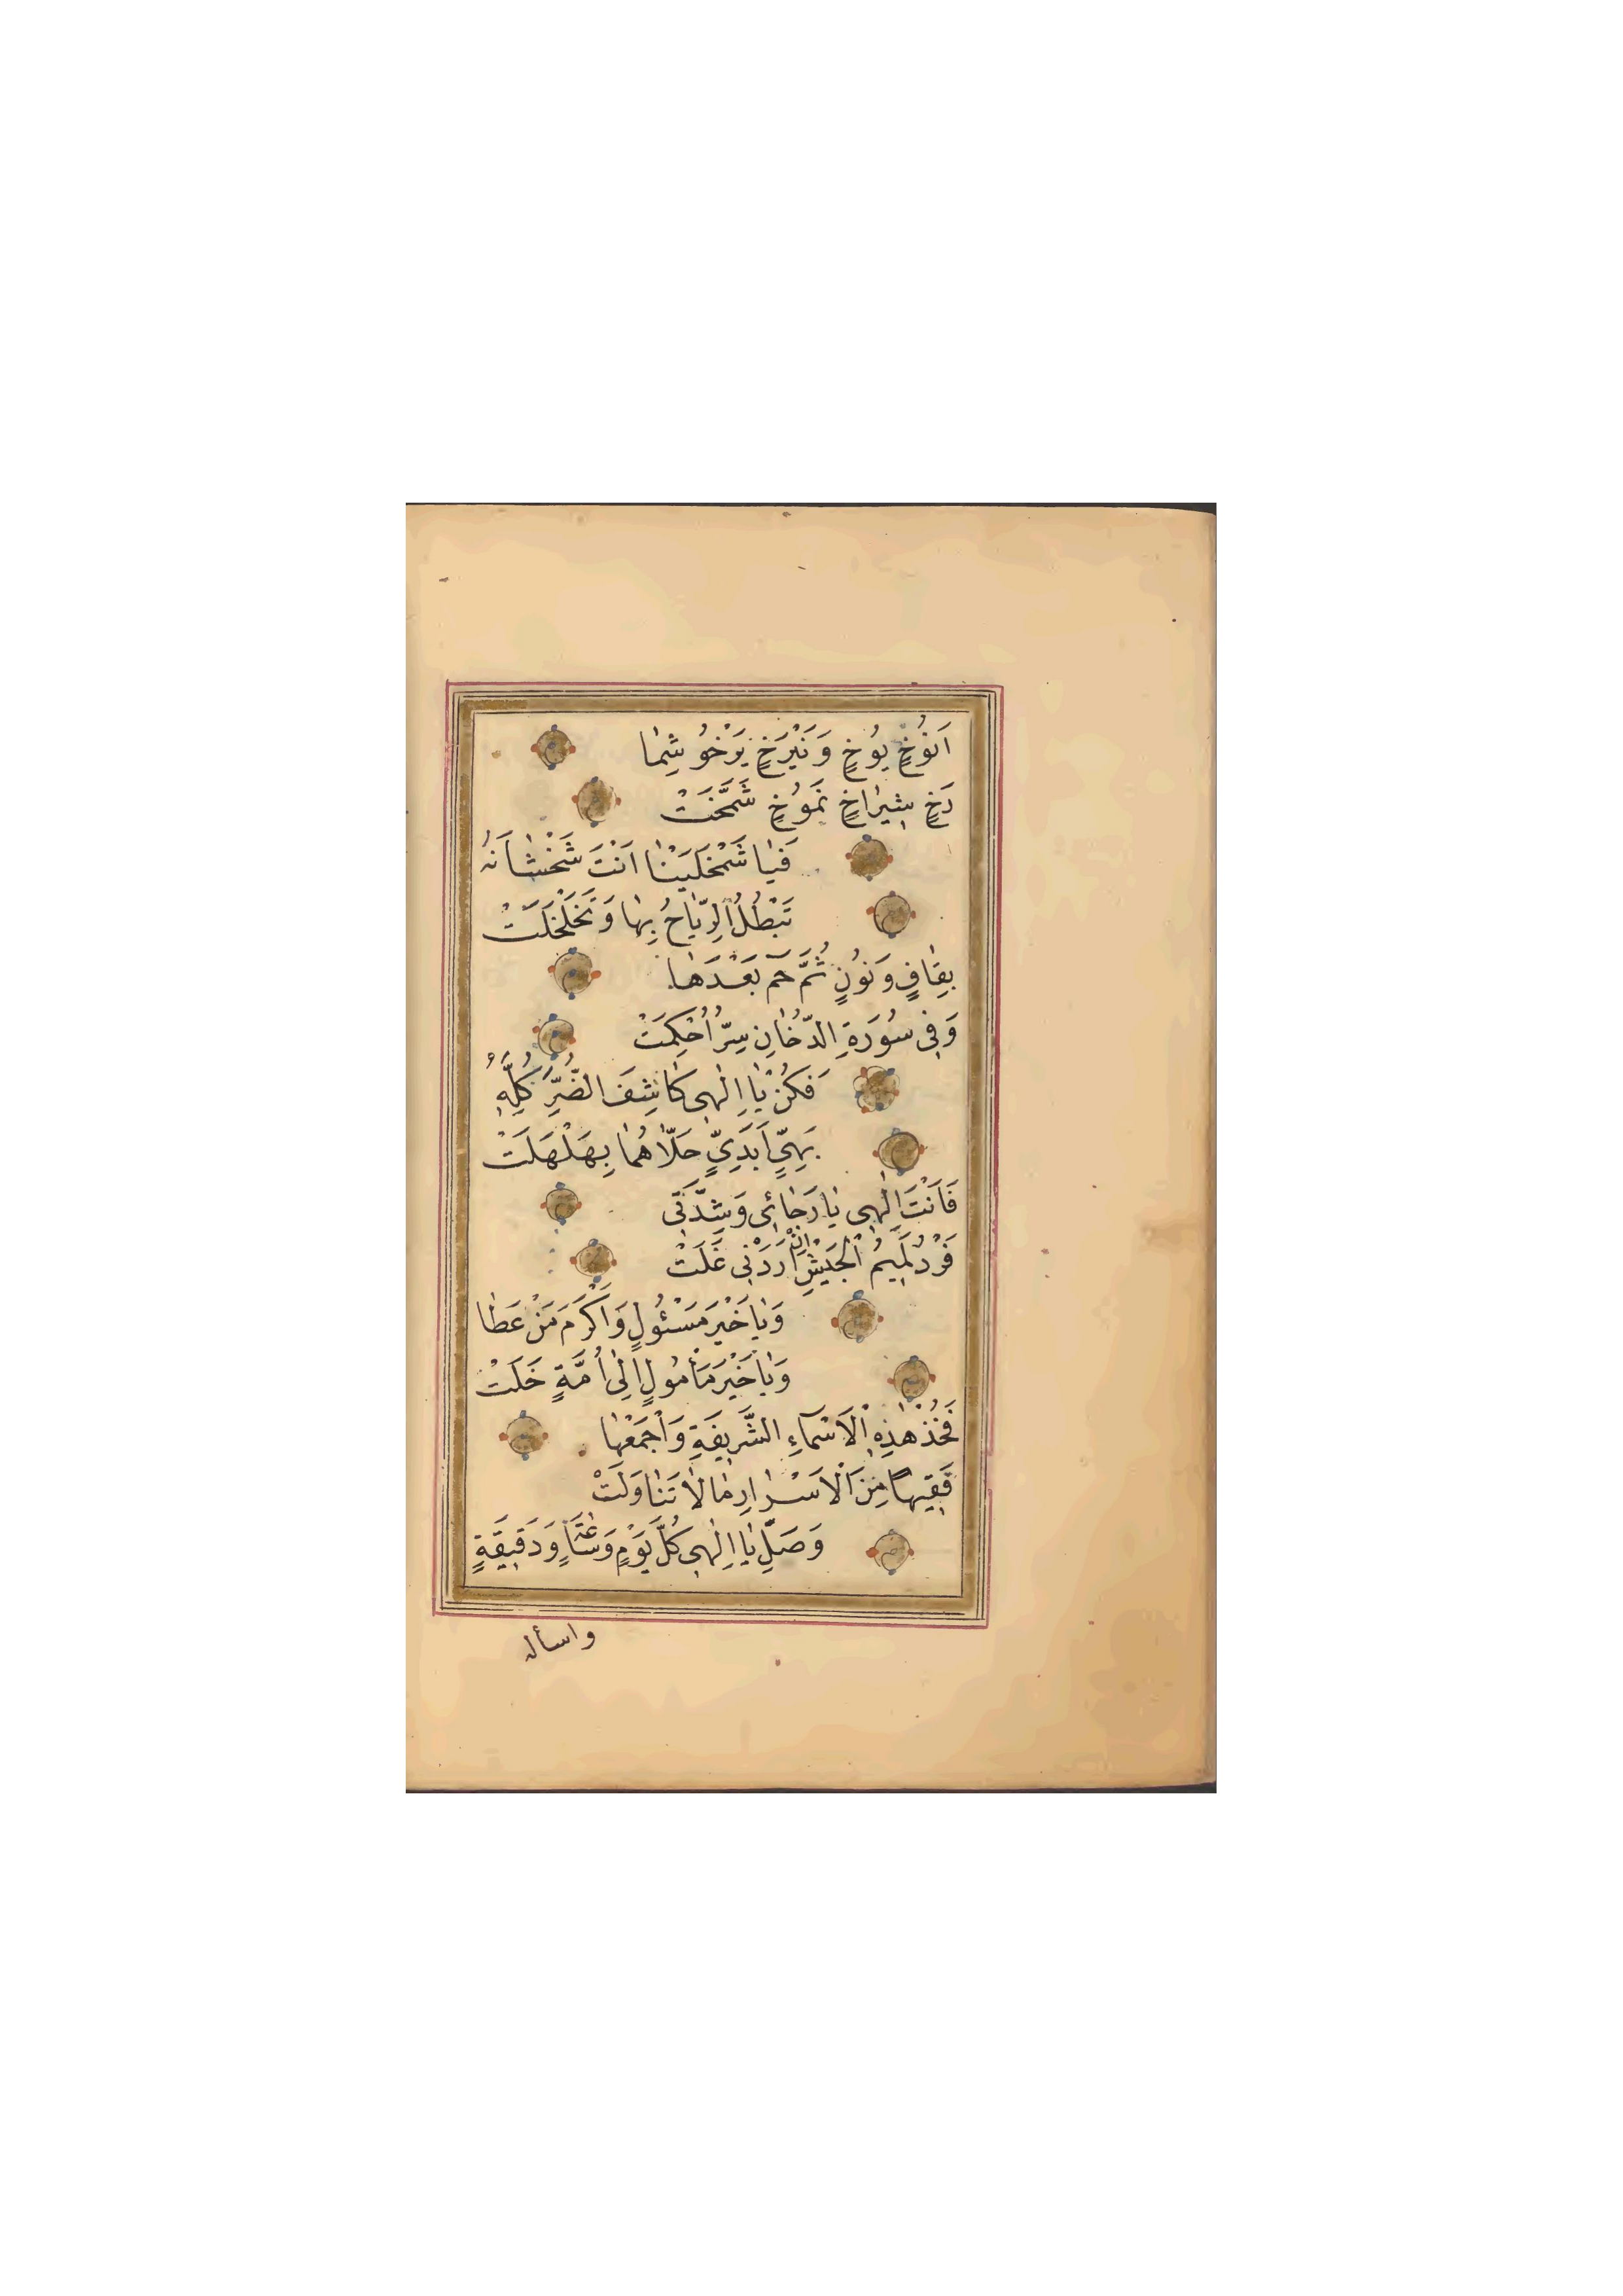 اَنُوخٍ يُوخٍ وَنَيْرَخٍ يَرْخُو شِمَا
دَخٍ بِشِيرَاخٍ نَمُوخٍ شَمَّخَتْ
فَيَا شَمْخَلَيْنَا اَنْتَ شَخْشَاَنُه
تَبْطُلُ الرِّيَاحُ بِهَا وَتَخَلْخَلَتْ
بِقَافٍ وَنُونٍ ثُمَّ حٓمٓ بَعْدَهَا
وَفِى سُورَةِ الدُّخَانِ سِرًّا اُحْكِمَتْ
فَكُنْ يَا اِلٰهِى كَاشِفَ الضُّرِّ كُلِّهِ
بِهَيٍّ اَبَدِيٍّ حَلَّاهُمَا بِهَلْهَلَتْ
فَاَنْتَ اِلٰهِى يَا رَجَائِى وَشِدَّتِى
فَرُدْ لَمِيمُ الْجَيْشِ اِنْ اَرَدْنِى غَلَتْ
وَيَا خَيْرَ مَسْئُولٍ وَاَكْرَمَ مَنْ عَطَا
وَيَا خَيْرَ مَأْمُولٍ اِلٰى اُمَّةٍ خَلَتْ
فَخُذْ هٰذِهِ الْاَسْمَاءِ الشَّرِيفَةِ وَاَجْمَعْهَا
فَفِيهَا مِنَ الْاَسْرَارِ مَا لَا تَنَاوَلَتْ
وَصَلِّ يَا اِلٰهِى كُلَّ يَوْمٍ وَسَاعَةٍ وَدَقِيقَةٍ
واسأله